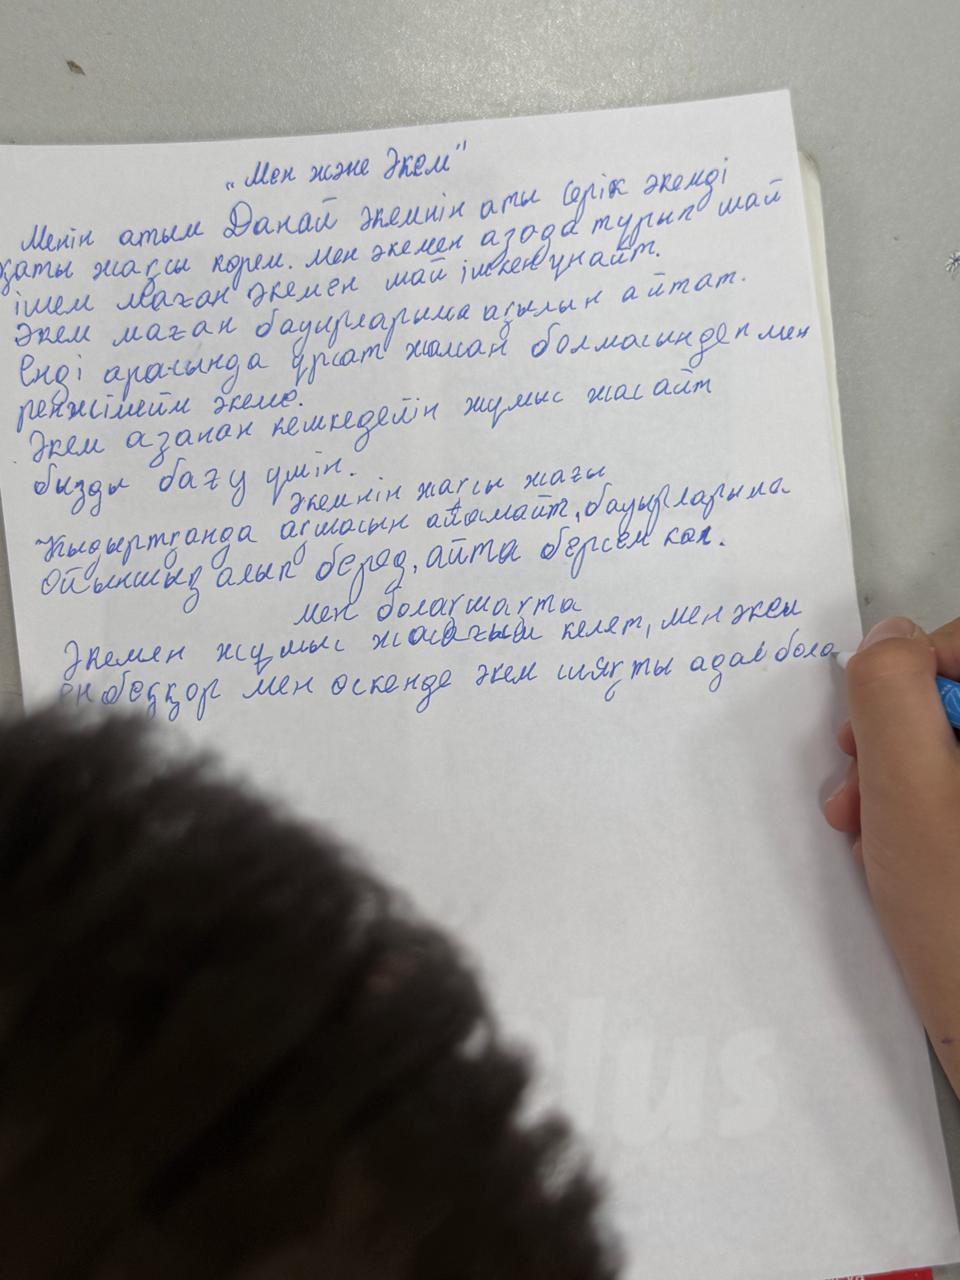 „Мен және Әкем"
Менін атым Данай әкемнін аты Серік әкемді
қаты жақсы көрем. Мен әкемен азода турып шай
ішем маған әкемен май ішкен ұнайт.
Әкем маған бауырларыма ақылын айтат.
Енді арасында ұрсат жаман болмасындеп мен
ренжімейм әкеме.
Әкем азанан кешкедейін жұмыс жасайт
бызды бағу үшін.
Әкемнін жақсы жағы
Қыдыртқанда ақшасын айамайт, бауырларыма
ойыншық алып беред, айта берсем көп.
мен болақшақта
Әкемен жұмыс жасағым келет, мен әкем
енбеққор мен өскенде әкем шяқты адам бола
plus